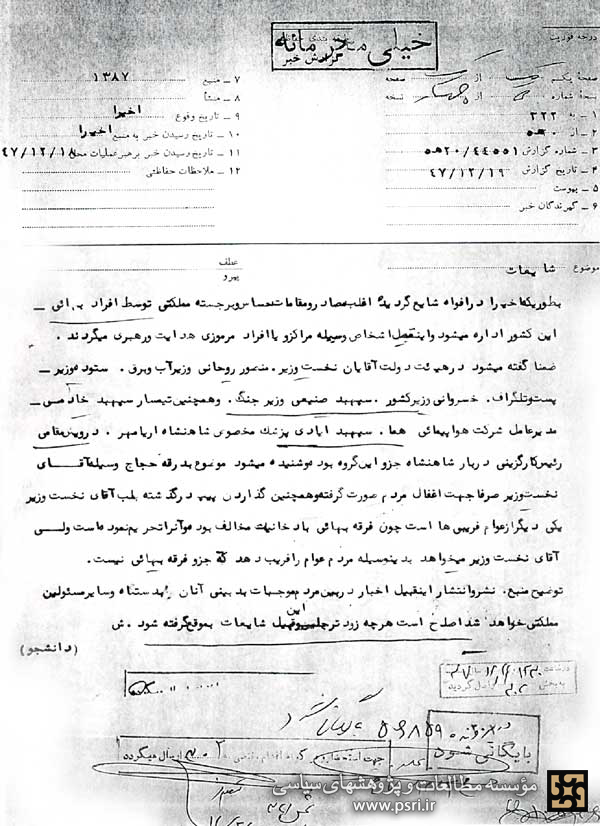 خیلی محرمانه
گزارش خبر
درجه فوریت
صفحه یکم از صفحه
نسخه شماره از نسخه
۱ ـ به ۳۲۲
۲ ـ از ۲۰ه‍
۳ ـ شماره گزارش ۲۰/۴۴۵۵۱ه‍
۴ ـ تاریخ گزارش ۴۷/۱۲/۱۹
۵ ـ پیوست
۶ ـ گیرندگان خبر
۷ ـ منبع ۱۳۸۷
۸ ـ منشأ
۹ ـ تاریخ وقوع اخیرا
۱۰ ـ تاریخ رسیدن خبر به منبع اخیرا
۱۱ ـ تاریخ رسیدن خبر برهبر عملیات محل ۴۷/۱۲/۱۸
۱۲ ـ ملاحظات حفاظتی
موضوع شایعات
عطف
پیرو
بطوریکه اخیرا در افواه شایع گردیده اغلب مصادر و مقامات حساس و برجسته مملکتی توسط افراد بهائی ـ
این کشور اداره میشود و اینقبیل اشخاص وسیله مراکز و یا افراد مرموزی هدایت و رهبری میگردند .
ضمنا گفته میشود در هیئت دولت آقایان نخست وزیر، منصور روحانی وزیر آب و برق. ستوده وزیر ـ
پست و تلگراف. خسروانی وزیر کشور . سپهبد صنیعی وزیر جنگ . و همچنین تیمسار سپهبد خادمی ـ
مدیر عامل شرکت هواپیمائی هما . سپهبد ایادی پزشک مخصوص شاهنشاه اریامهر . درویش مقامی
رئیس کارگزینی دربار شاهنشاه جزو این گروه بوده شنیده میشود موضوع بدرقه حجاج وسیله آقای
نخست وزیر صرفا جهت اغفال مردم صورت گرفته و همچنین گذاردن پیپ درگذشته بلب آقای نخست وزیر
یکی دیگر از عوام فریبی ها است چون فرقه بهائی با دخانیات مخالف بوده و آنرا تحریم نموده است ولی
آقای نخست وزیر میخواهد بدینوسیله مردم عوام را فریب دهد که جزو فرقه بهائی نیست.
توضیح منبع. نشر و انتشار اینقبیل اخبار در بین مردم موجبات بدبینی آنان بدستگاه و سایر مسئولین
مملکتی خواهد شد اصلح است هرچه زودتر جلو این قبیل شایعات بموقع گرفته شود . ش
(دانشجو)
بایگانی شود
مؤسسه مطالعات و پژوهشهای سیاسی
www.psri.ir